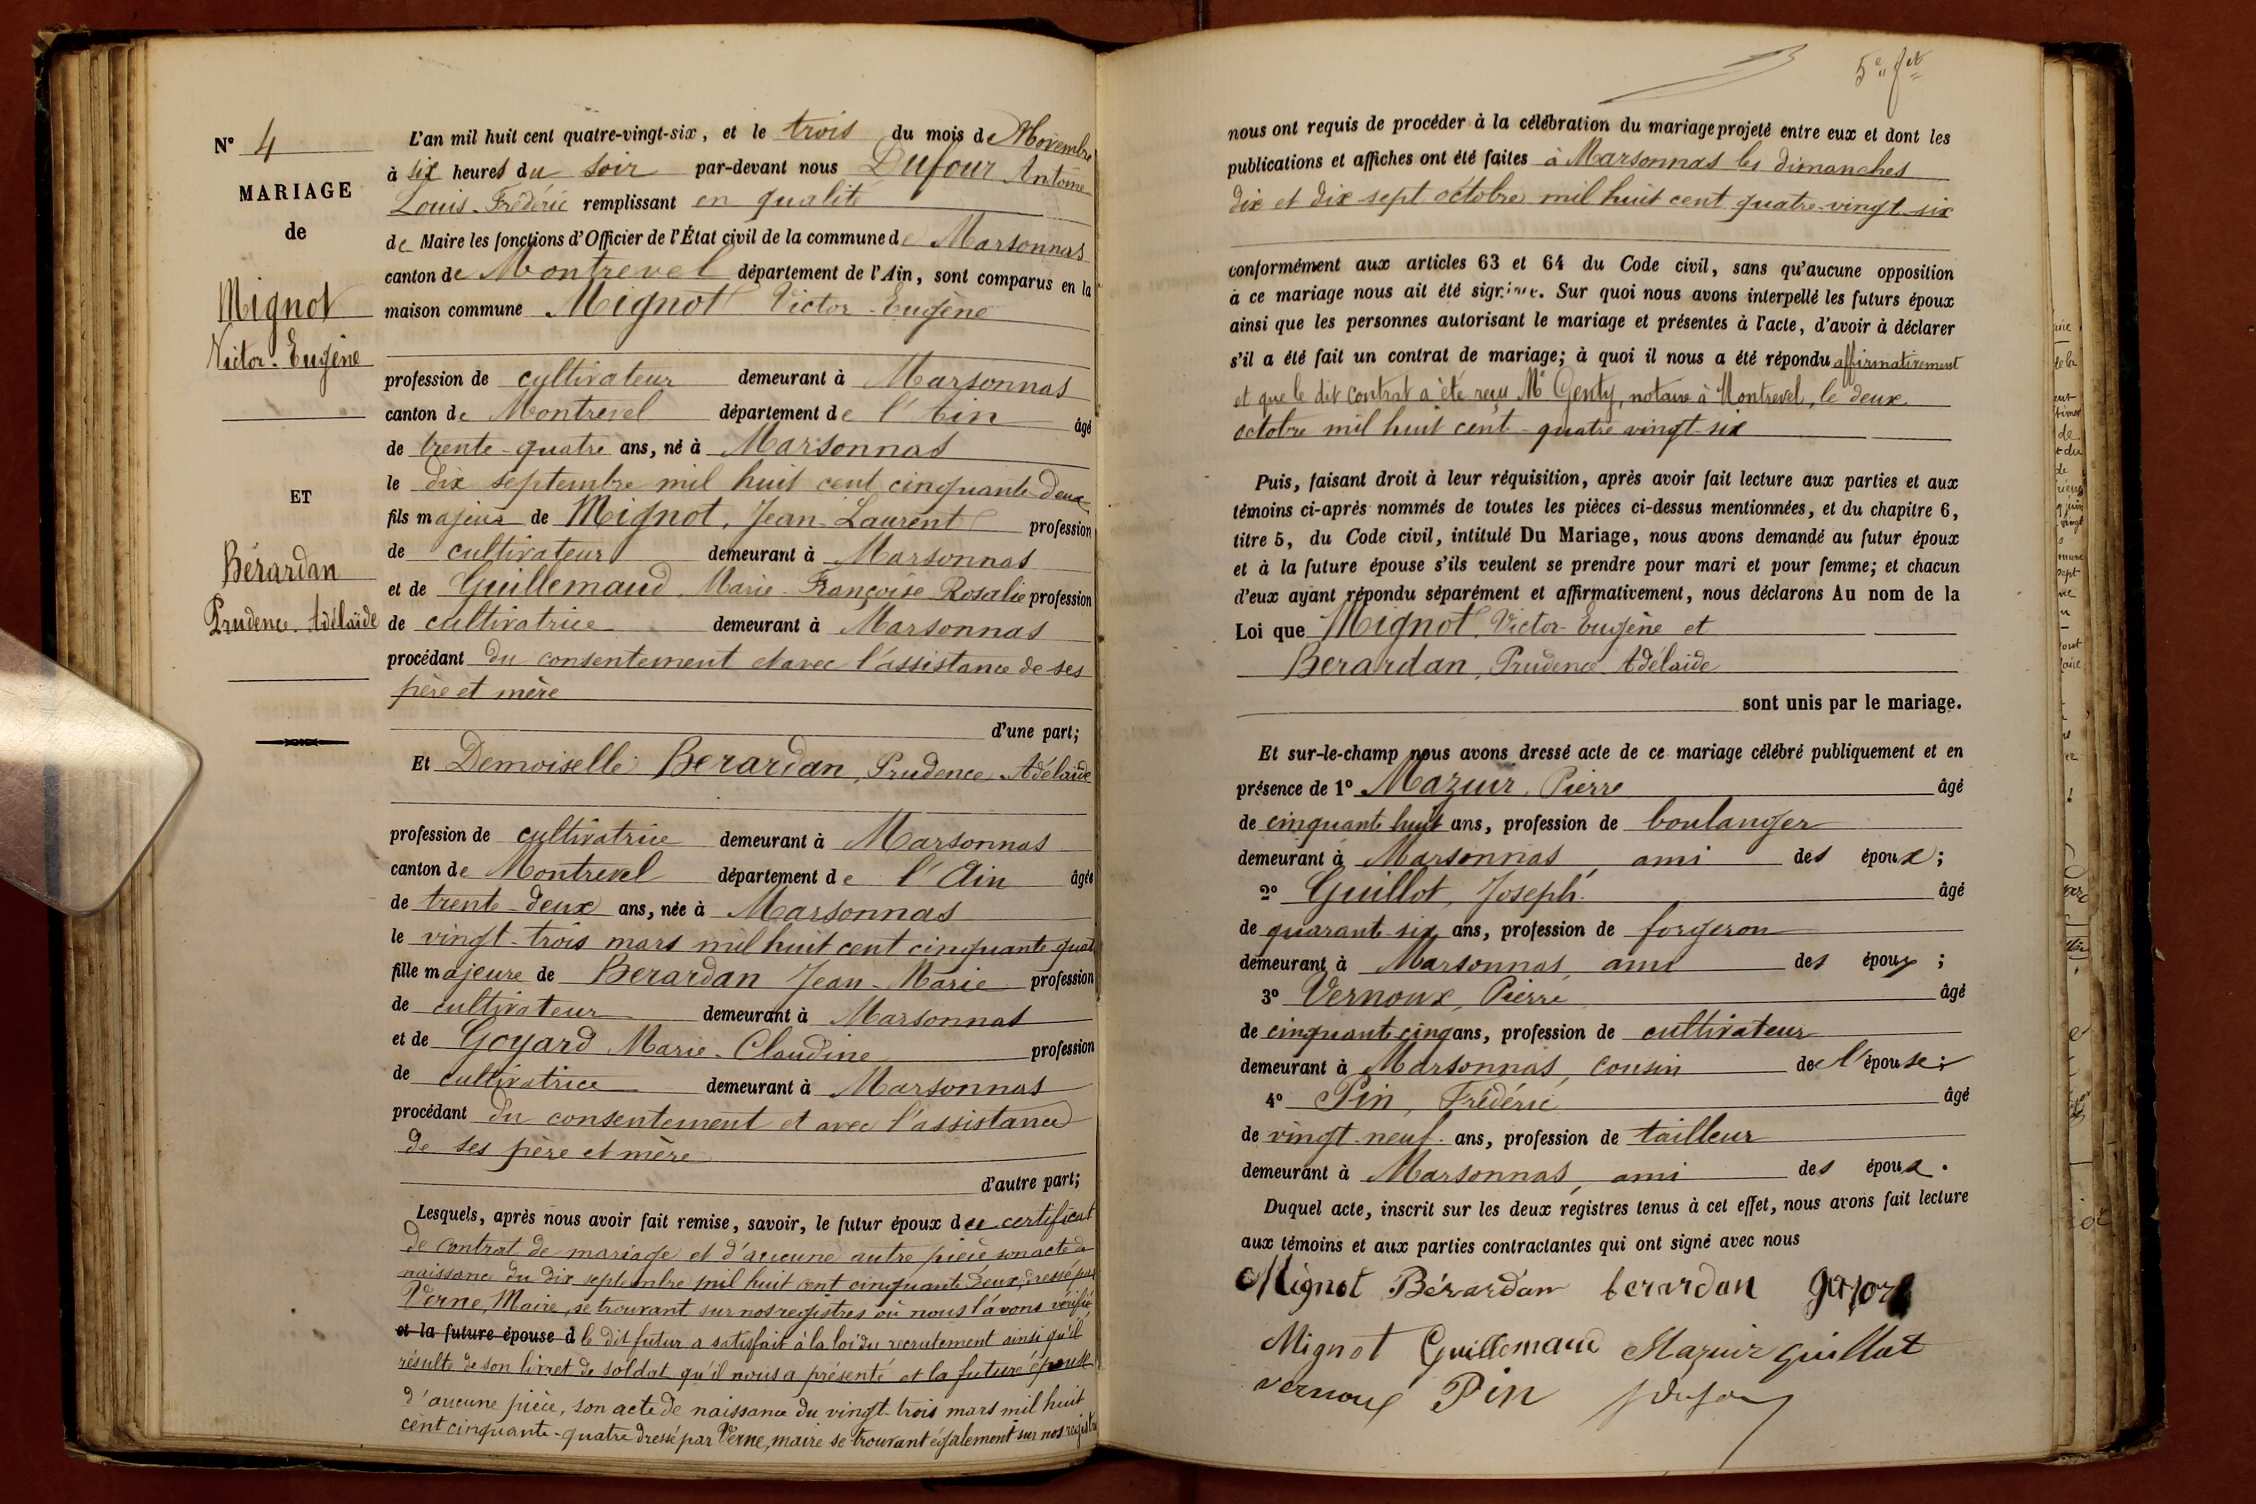 N° 4
MARIAGE
de
Mignot
Victor-Eugène
ET
Bérardan
Prudence-Adélaïde
L'an mil huit cent quatre-vingt-six, et le trois du mois de Novembre
à six heures du soir par-devant nous Dufour Antoine
Louis-Frédéric remplissant en qualité
de Maire les fonctions d'Officier de l'État civil de la commune de Marsonnas
canton de Montrevel département de l'Ain, sont comparus en la
maison commune Mignot Victor-Eugène
profession de cultivateur demeurant à Marsonnas
canton de Montrevel département de l'Ain âgé
de trente-quatre ans, né à Marsonnas
le dix septembre mil huit cent cinquante-deux
fils majeur de Mignot, Jean-Laurent profession
de cultivateur demeurant à Marsonnas
et de Guillemaud Marie-Françoise Rosalie profession
de cultivatrice demeurant à Marsonnas
procédant du consentement et avec l'assistance de ses
père et mère
d'une part;
Et Demoiselle Berardan, Prudence-Adélaïde
profession de cultivatrice demeurant à Marsonnas
canton de Montrevel département de l'Ain âgée
de trente-deux ans, née à Marsonnas
le vingt-trois mars mil huit cent cinquante quat
fille majeure de Berardan Jean-Marie profession
de cultivateur demeurant à Marsonnas
et de Goyard Marie-Claudine profession
de cultivatrice demeurant à Marsonnas
procédant du consentement et avec l'assistance
de ses père et mère
d'autre part;
Lesquels, après nous avoir fait remise, savoir, le futur époux du certificat
de contrat de mariage et d'aucune autre pièce son acte de
naissance du dix septembre mil huit cent cinquante deux, dressé par
Verne, Maire, se trouvant sur nos registres où nous l'avons vérifié
et la future épouse d le dit futur a satisfait à la loi du recrutement ainsi qu'il
résulte de son livret de soldat qu'il nous a présenté et la future épouse
d'aucune pièce, son acte de naissance du vingt-trois mars mil huit
cent cinquante-quatre dressé par Verne, maire se trouvant également sur nos registres
5e ft
nous ont requis de procéder à la célébration du mariage projeté entre eux et dont les
publications et affiches ont été faites à Marsonnas les dimanches
dix et dix sept octobre mil huit cent quatre-vingt-six
conformément aux articles 63 et 64 du Code civil, sans qu'aucune opposition
à ce mariage nous ait été signifiée. Sur quoi nous avons interpellé les futurs époux
ainsi que les personnes autorisant le mariage et présentes à l'acte, d'avoir à déclarer
s'il a été fait un contrat de mariage; à quoi il nous a été répondu affirmativement
et que le dit contrat a été reçu Me Genty, notaire à Montrevel, le deux
octobre mil huit cent-quatre vingt-six
Puis, faisant droit à leur réquisition, après avoir fait lecture aux parties et aux
témoins ci-après nommés de toutes les pièces ci-dessus mentionnées, et du chapitre 6,
titre 5, du Code civil, intitulé Du Mariage, nous avons demandé au futur époux
et à la future épouse s'ils veulent se prendre pour mari et pour femme; et chacun
d'eux ayant répondu séparément et affirmativement, nous déclarons Au nom de la
Loi que Mignot, Victor-Eugène et
Berardan, Prudence Adélaïde
sont unis par le mariage.
Et sur-le-champ nous avons dressé acte de ce mariage célébré publiquement et en
présence de 1° Mazuir, Pierre âgé
de cinquante huit ans, profession de boulanger
demeurant à Marsonnas, ami des époux;
2° Guillot, Joseph. âgé
de quarante-six ans, profession de forgeron
demeurant à Marsonnas, ami des époux;
3° Vernoux, Pierre âgé
de cinquante cinq ans, profession de cultivateur
demeurant à Marsonnas, cousin de l'épouse;
4° Pin, Frédéric âgé
de vingt-neuf ans, profession de tailleur
demeurant à Marsonnas, ami des époux.
Duquel acte, inscrit sur les deux registres tenus à cet effet, nous avons fait lecture
aux témoins et aux parties contractantes qui ont signé avec nous
Mignot Bérardan berardan
Mignot Guillemaud Mazuir guillot
vernoux Pin Dufour